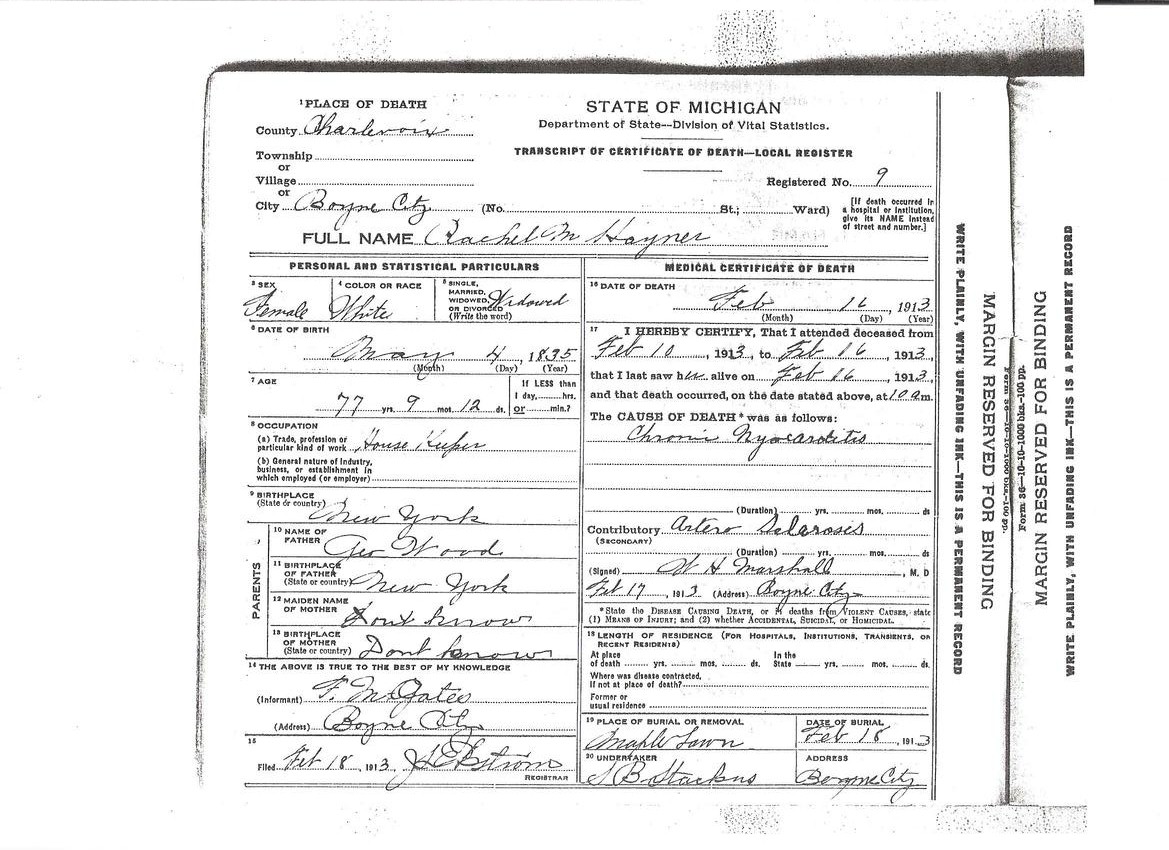 ¹PLACE OF DEATH
County Charlevoix
Township
or
Village
or
City Boyne City (No. St.; Ward)
STATE OF MICHIGAN
Department of State—Division of Vital Statistics.
TRANSCRIPT OF CERTIFICATE OF DEATH—LOCAL REGISTER
Registered No. 9
[If death occurred in
a hospital or institution,
give its NAME instead
of street and number.]
FULL NAME Rachel M Hayner
PERSONAL AND STATISTICAL PARTICULARS
³ SEX
Female
⁴ COLOR OR RACE
White
⁵ SINGLE,
MARRIED,
WIDOWED,
OR DIVORCED
(Write the word)
Widowed
⁶ DATE OF BIRTH
May 4, 1835
(Month) (Day) (Year)
⁷ AGE
77 yrs. 9 mos. 12 ds.
If LESS than
1 day, hrs.
or min.?
⁸ OCCUPATION
(a) Trade, profession or
particular kind of work House Keeper
(b) General nature of industry,
business, or establishment in
which employed (or employer)
⁹ BIRTHPLACE
(State or country)
New York
PARENTS
¹⁰ NAME OF
FATHER
Geo Wood
¹¹ BIRTHPLACE
OF FATHER
(State or country) New York
¹² MAIDEN NAME
OF MOTHER
Dont know
¹³ BIRTHPLACE
OF MOTHER
(State or country) Dont know
¹⁴ THE ABOVE IS TRUE TO THE BEST OF MY KNOWLEDGE
(Informant) F. M. Gates
(Address) Boyne City
¹⁵
Filed Feb 18, 1913
REGISTRAR
MEDICAL CERTIFICATE OF DEATH
¹⁶ DATE OF DEATH
Feb 16 1913
(Month) (Day) (Year)
¹⁷ I HEREBY CERTIFY, That I attended deceased from
Feb 10, 1913, to Feb 16, 1913,
that I last saw her alive on Feb 16, 1913,
and that death occurred, on the date stated above, at 10 am.
The CAUSE OF DEATH* was as follows:
Chronic Myocarditis
(Duration) yrs. mos. ds
Contributory Artero Sclarosis
(SECONDARY)
(Duration) yrs. mos. ds
(Signed) W H Marshall, M. D
Feb 17, 1913 (Address) Boyne City
*State the DISEASE CAUSING DEATH, or in deaths from VIOLENT CAUSES, state
(1) MEANS OF INJURY; and (2) whether ACCIDENTAL, SUICIDAL, or HOMICIDAL.
¹⁸ LENGTH OF RESIDENCE (FOR HOSPITALS, INSTITUTIONS, TRANSIENTS, OR
RECENT RESIDENTS)
At place
of death yrs. mos. ds.
In the
State yrs. mos. ds.
Where was disease contracted,
if not at place of death?
Former or
usual residence
¹⁹ PLACE OF BURIAL OR REMOVAL
Maple Lawn
DATE OF BURIAL
Feb 18, 1913
²⁰ UNDERTAKER
S B Stackus
ADDRESS
Boyne City
WRITE PLAINLY, WITH UNFADING INK—THIS IS A PERMANENT RECORD
MARGIN RESERVED FOR BINDING
Form 36—10-10-1000 bks.-100 pp.
Form 36—10-10-1000 bks.-100 pp.
MARGIN RESERVED FOR BINDING
WRITE PLAINLY, WITH UNFADING INK—THIS IS A PERMANENT RECORD